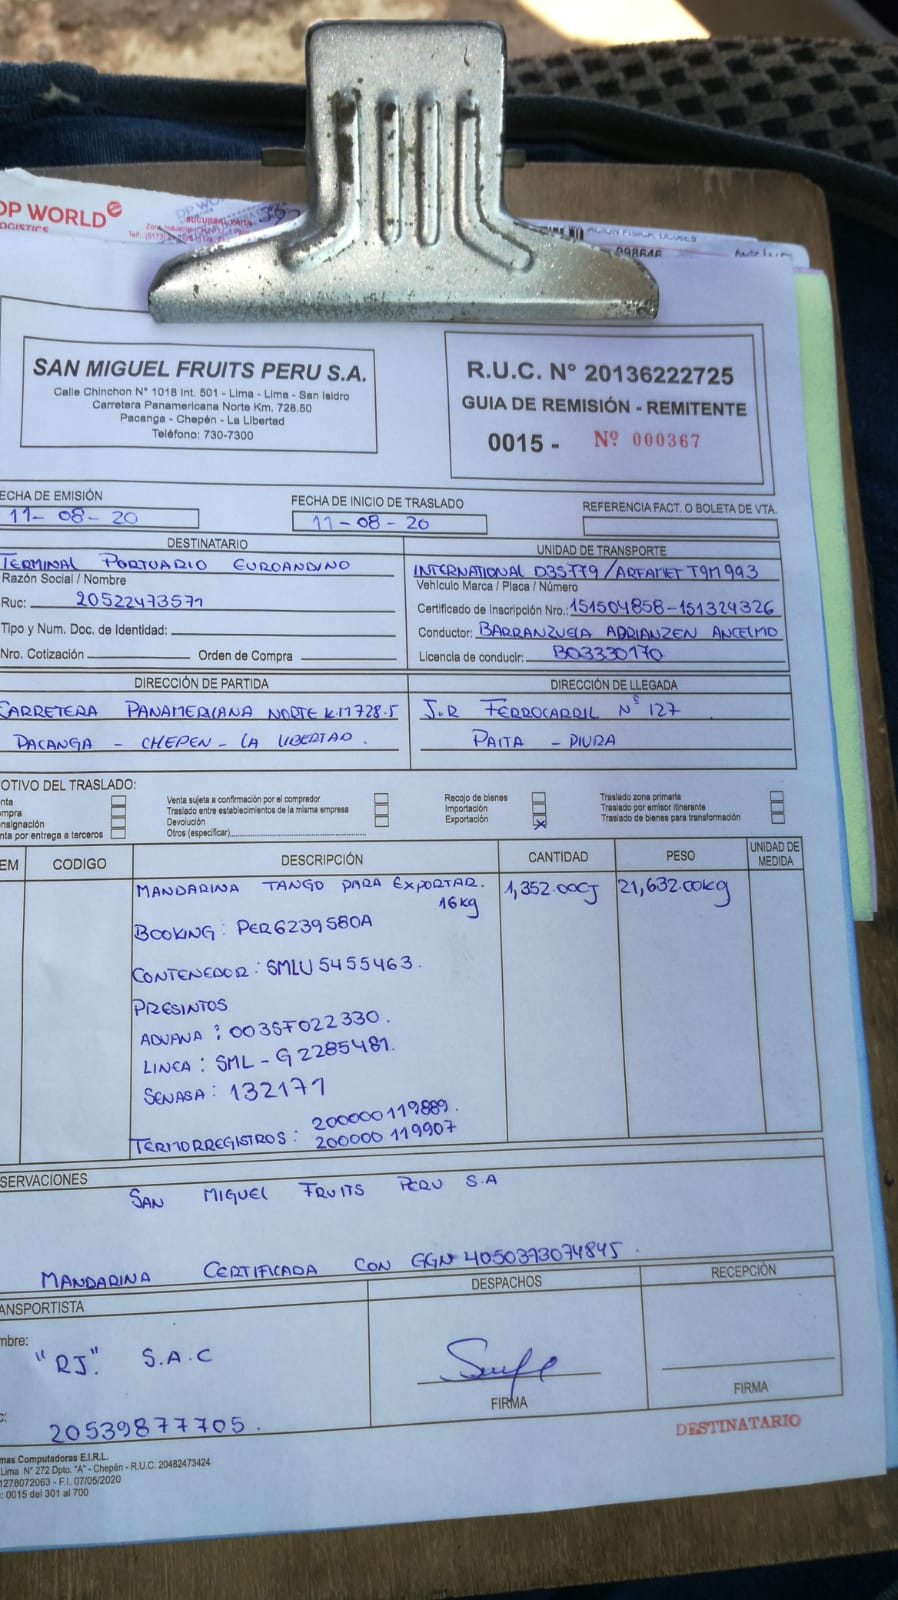 DP WORLD
LOGISTICS
SUCURSAL PAITA
098646
SAN MIGUEL FRUITS PERU S.A.
Calle Chinchon N° 1018 Int. 501 - Lima - Lima - San Isidro
Carretera Panamericana Norte Km. 728.50
Pacanga - Chepén - La Libertad
Teléfono: 730-7300
R.U.C. N° 20136222725
GUIA DE REMISIÓN - REMITENTE
0015 - Nº 000367
ECHA DE EMISIÓN
11-08-20
FECHA DE INICIO DE TRASLADO
11-08-20
REFERENCIA FACT. O BOLETA DE VTA.
DESTINATARIO
TERMINAL PORTUARIO EUROANDINO
Razón Social / Nombre
Ruc: 20522473571
Tipo y Num. Doc. de Identidad:
Nro. Cotización Orden de Compra
UNIDAD DE TRANSPORTE
INTERNATIONAL D3S779/ARFAMET T9M993
Vehículo Marca / Placa / Número
Certificado de Inscripción Nro.: 151504858-151324326
Conductor: BARRANZUELA ADRIANZEN ANCELMO
Licencia de conducir: B03330170
DIRECCIÓN DE PARTIDA
CARRETERA PANAMERICANA NORTE K.M 728.5
PACANGA - CHEPEN - LA LIBERTAD.
DIRECCIÓN DE LLEGADA
J.R FERROCARRIL N° 127
PAITA - PIURA
OTIVO DEL TRASLADO:
nta
mpra
nsignación
nta por entrega a terceros
Venta sujeta a confirmación por el comprador
Traslado entre establecimientos de la misma empresa
Devolución
Otros (especificar)
Recojo de bienes
Importación
Exportación X
Traslado zona primaria
Traslado por emisor itinerante
Traslado de bienes para transformación
EM CODIGO DESCRIPCIÓN CANTIDAD PESO UNIDAD DE MEDIDA
MANDARINA TANGO PARA EXPORTAR. 1,352.00CJ 21,632.00kg
16kg
BOOKING: PER6239580A
CONTENEDOR: SMLU 5455463.
PRESINTOS
ADUANA: 003SF022330.
LINEA: SML-G2285481.
SENASA: 132171
TERMORREGISTROS: 200000119889.
200000 119907
SERVACIONES
SAN MIGUEL FRUITS PERU S.A
MANDARINA CERTIFICADA CON GGN 4050373074845.
ANSPORTISTA
mbre:
"RJ" S.A.C
C:
20539877705.
DESPACHOS
FIRMA
RECEPCIÓN
FIRMA
DESTINATARIO
mas Computadoras E.I.R.L.
Lima N° 272 Dpto. "A" - Chepén - R.U.C. 20482473424
1278072063 - F.I. 07/05/2020
: 0015 del 301 al 700